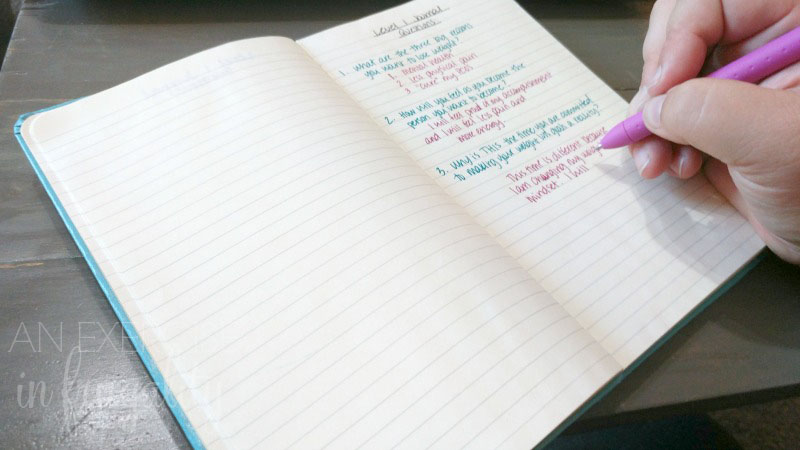 Level 1 Journal
Questions
1. What are the three big reasons
you want to lose weight?
1. mental health
2. less physical pain
3. "cure" my PCOS
2. How will you feel as you become the
person you want to become?
I will feel proud of my accomplishments
and I will feel less pain and
more energy.
3. Why is THIS the time you are committed
to making your weight loss goals a reality?
This time is different because
I am changing my
mindset. I will
AN EXER
in frugality